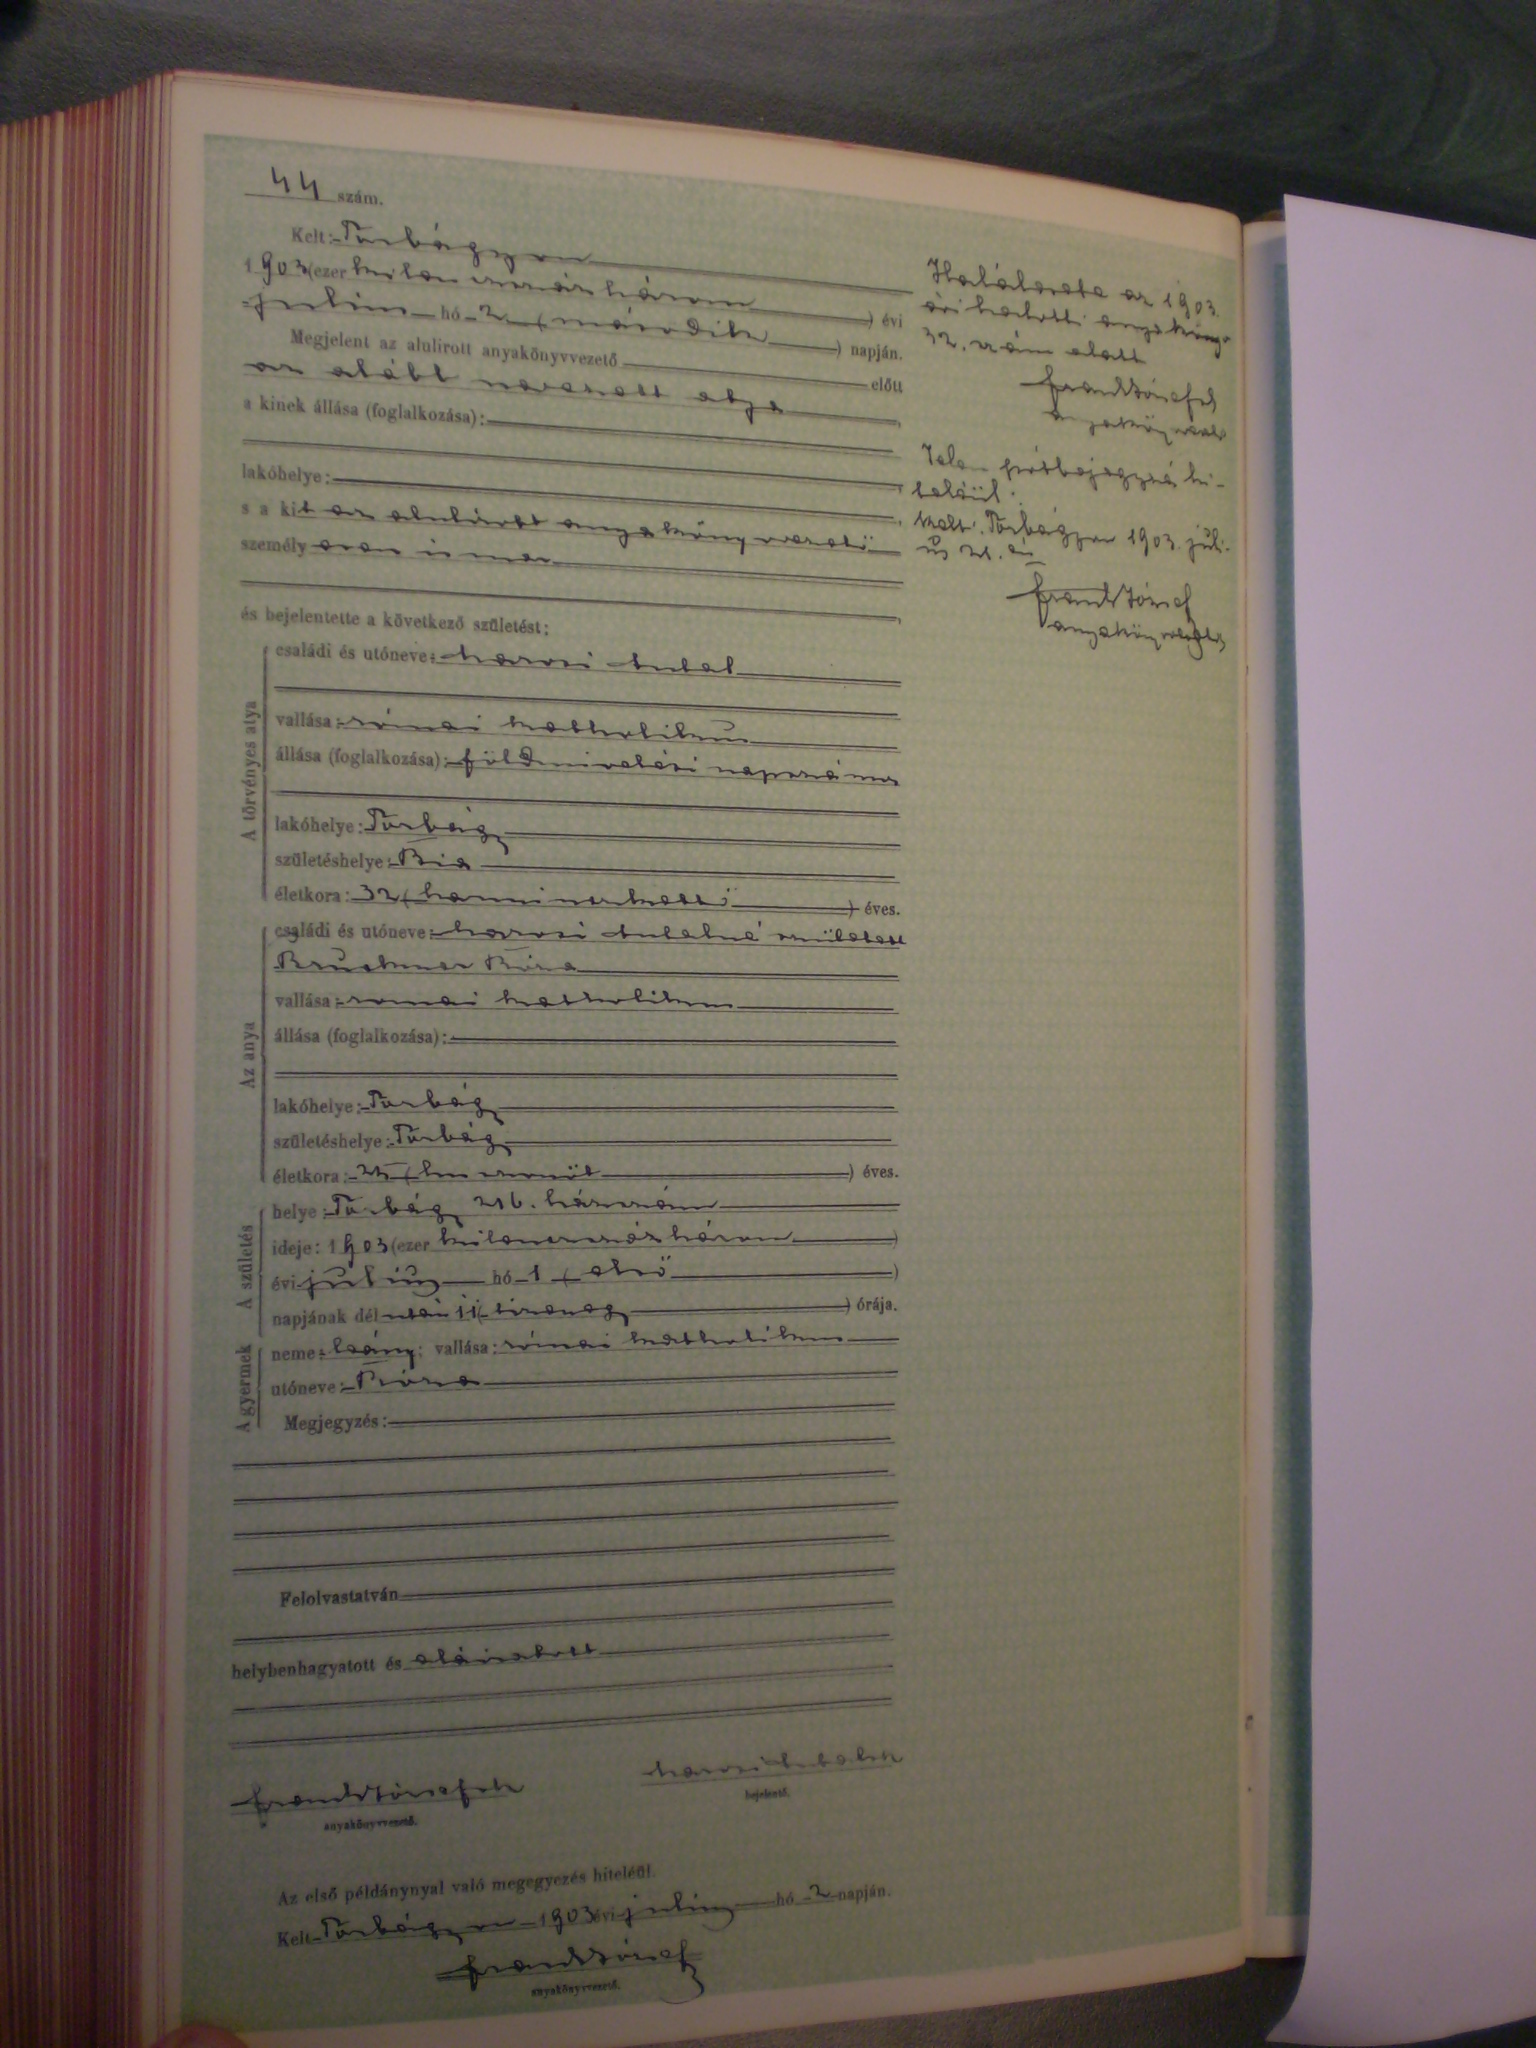 44 szám.
Kelt: Törbágyon
1903 (ezer kilenczszázhárom) évi
julius hó 2 (második) napján.
Megjelent az alulirott anyakönyvvezető előtt
az alább nevezett atya
a kinek állása (foglalkozása):
lakóhelye:
s a kit az alulirott anyakönyvvezető
személyesen ismer
és bejelentette a következő születést:
A törvényes atya
családi és utóneve: Antal
vallása: római katholikus
állása (foglalkozása): földmivelési napszámos
lakóhelye: Törbágy
születéshelye: Bia
életkora: 32 (harminczkettő) éves.
Az anya
családi és utóneve: Antalné született
Róza
vallása: romai katholikus
állása (foglalkozása):
lakóhelye: Törbágy
születéshelye: Törbágy
életkora: 25 (huszonöt) éves.
A születés
helye: Törbágy 216. házszám
ideje: 1903 (ezer kilenczszázhárom)
évi julius hó 1 (első)
napjának délután 11 (tizenegy) órája.
A gyermek
neme: leány; vallása: római katholikus
utóneve: Róza
Megjegyzés:
Felolvastatván
helybenhagyatott és aláiratott
Frank József
anyakönyvvezető.
Antal
bejelentő.
Az első példánynyal való megegyezés hiteléül.
Kelt Törbágyon 1903 évi julius hó 2 napján.
Frank József
anyakönyvvezető.
Halálesete az 1903.
évi halotti anyakönyv
32. szám alatt
Frank József
anyakönyvvezető
Jelen hi-
teléül.
Kelt. Törbágyon 1903. juli-
us 21. én
Frank József
anyakönyvvezető